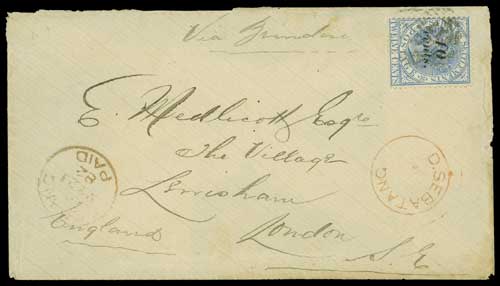 Via Brindisi
10
cents.
E. Medlicott Esqre
The Village
Lewisham
London
S. E
England
PAID
O.SEBATANG